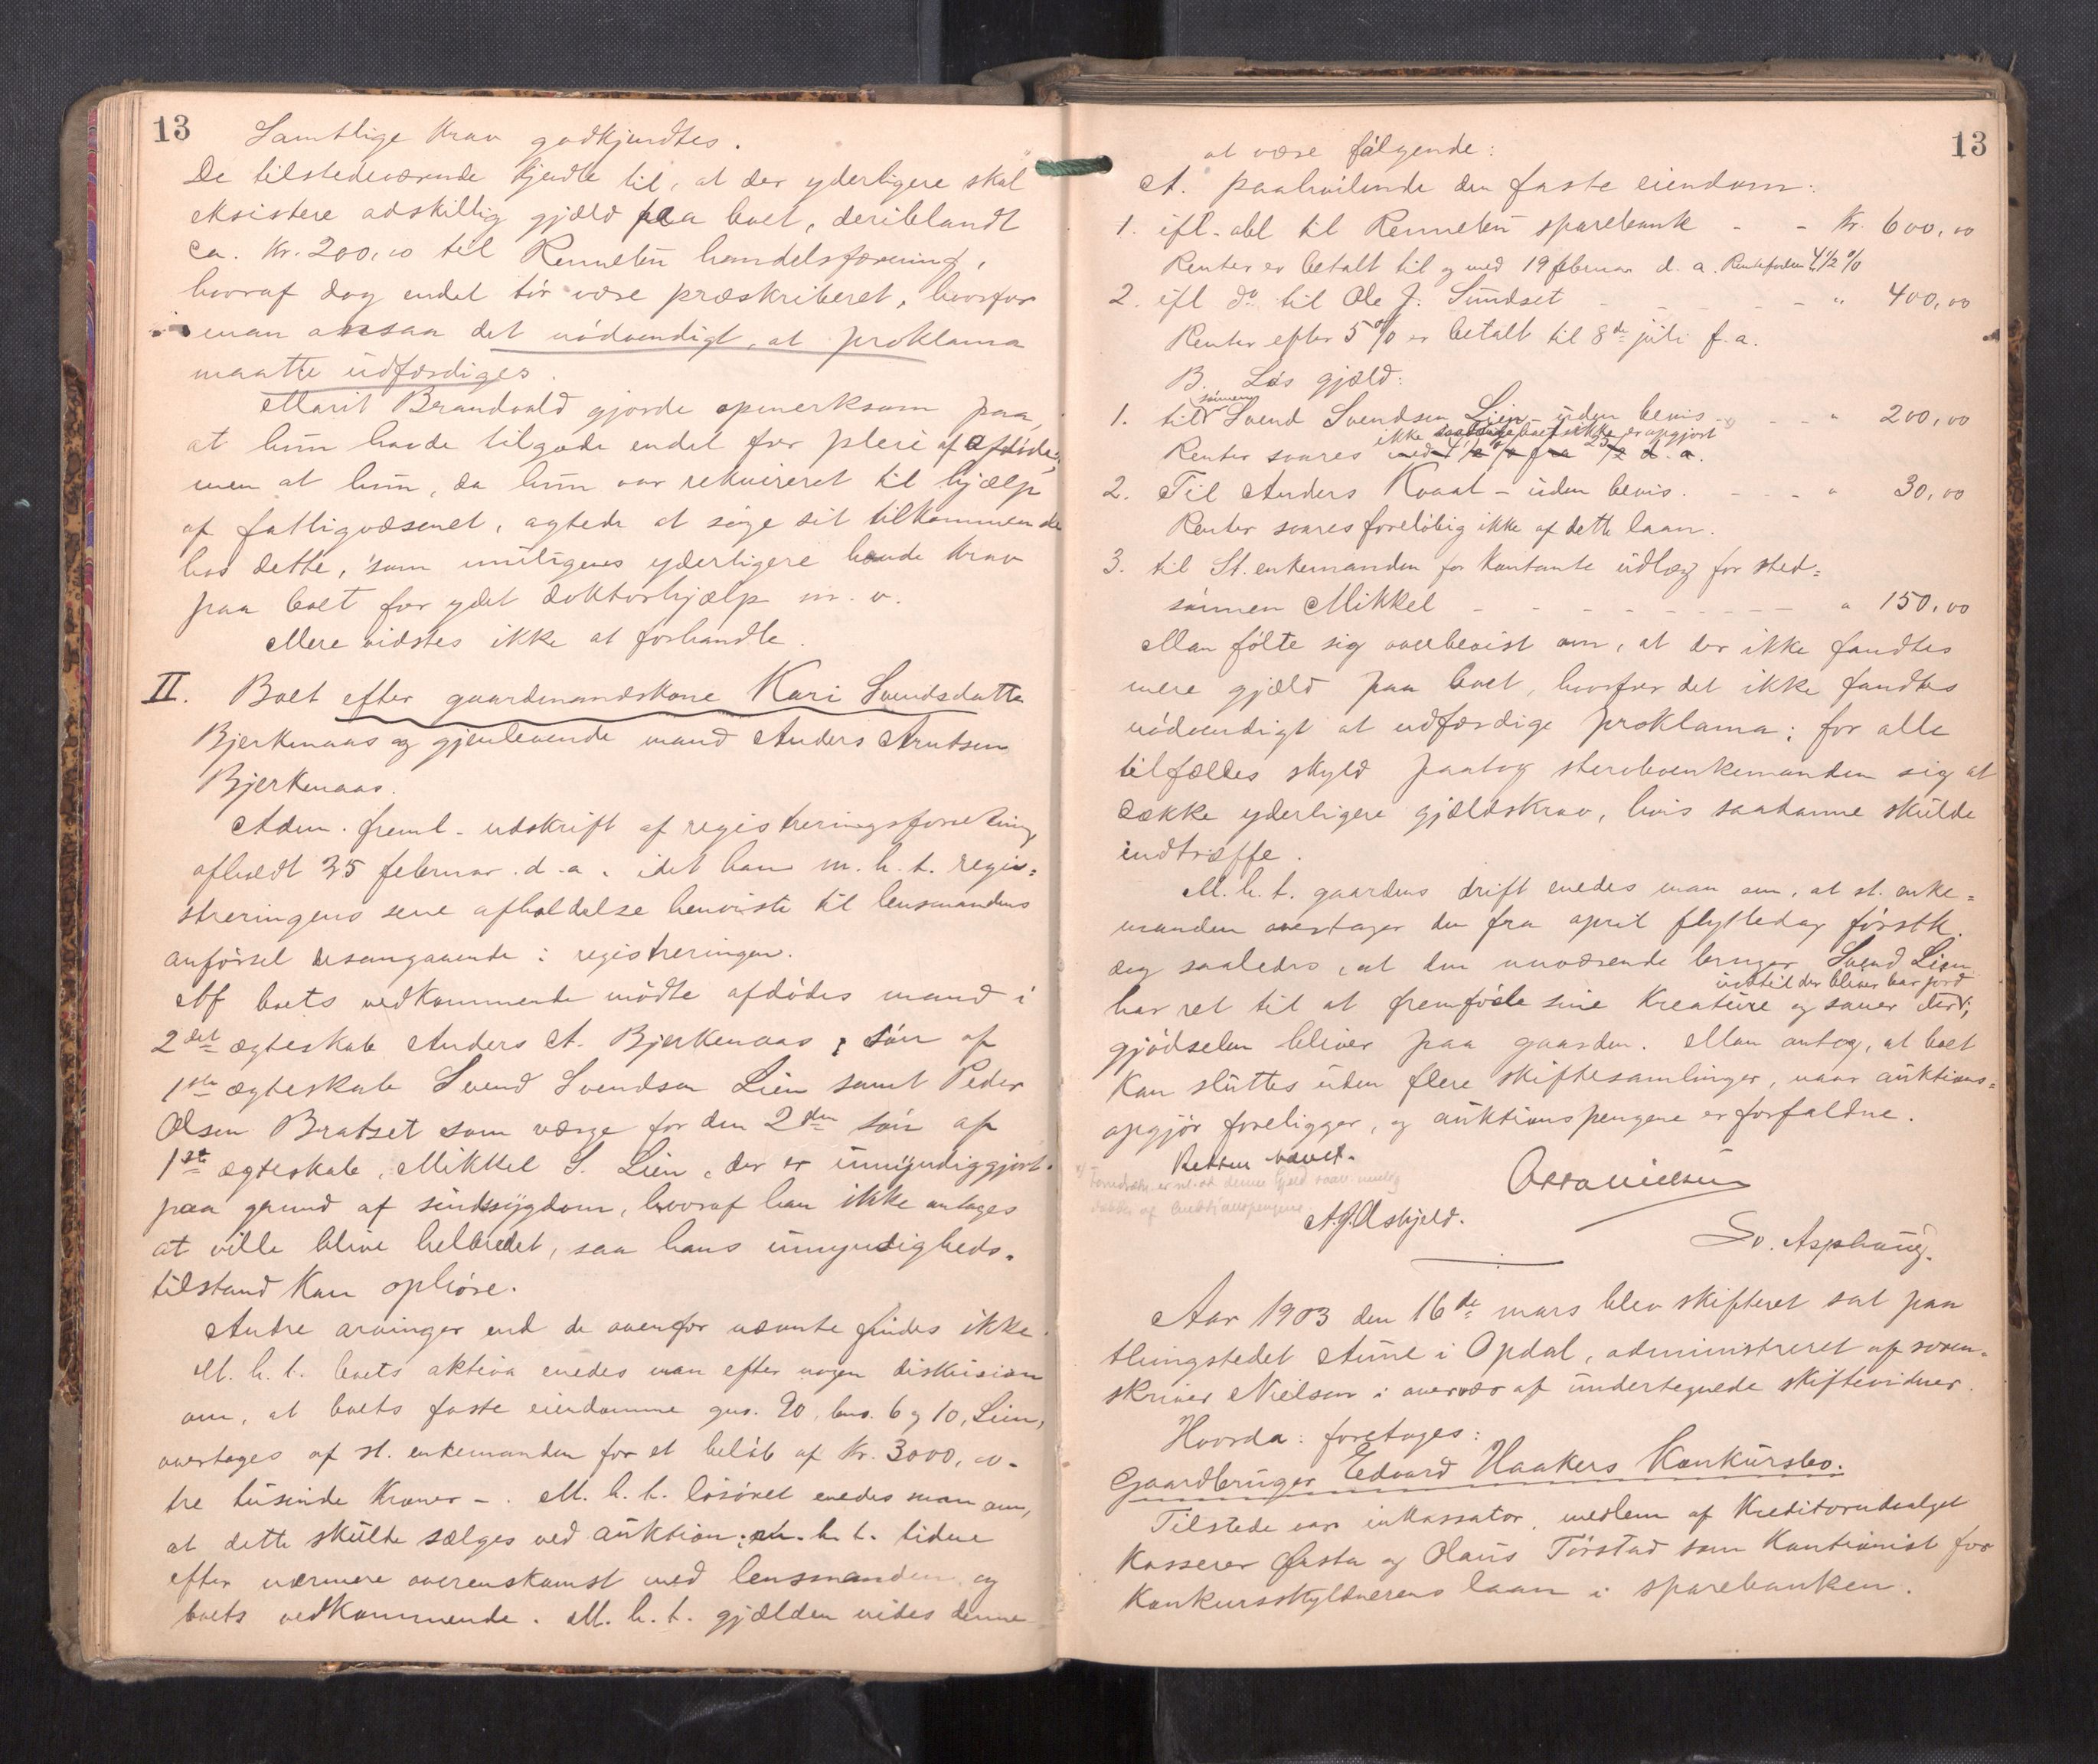 13
Samtlige krav godkjendtes.
De tilstedeværende kjendte til, at der yderligere skal
eksistere adskillig gjæld paa boet, deriblandt
ca. kr. 200,00 til Rennebu handelsforening,
hvoraf dog endel tör være præskriberet, hvorfor
man ansaa det nödvendigt, at proklama
maatte udfærdiges.
Marit Brandvold gjorde opmerksom paa,
at hun havde tilgode endel for pleie af afdöde,
men at hun, da hun var rekvireret til hjælp
af fattigvæsenet, agtede at söge sit tilkommende
hos dette, som muligens yderligere havde krav
paa boet for ydet doktorhjælp m. v.
Mere vidstes ikke at forhandle.
II. Boet efter gaardmandskone Kari Svendsdatter
Bjerkenaas og gjenlevende mand Anders Arntsen
Bjerkenaas.
Adm. freml. udskrift af registreringsforretning
afholdt 25 februar d. a. idet han m. h. t. regi=
streringens sene afholdelse henviste til lensmandens
anförsel desangaaende i registreringen.
Af boets vedkommende mödte afdödes mand i
2det ægteskab Anders A. Bjerkenaas, sön af
1ste ægteskab Svend Svendsen Lien samt Peder
Olsen Bratset som værge for den 2den sön af
1ste ægteskab, Mikkel S. Lien, der er umyndiggjort
paa grund af sindssygdom, hvoraf han ikke antages
at ville blive helbredet, saa hans umyndigheds=
tilstand kan ophöre.
Andre arvinger end de ovenfor nævnte findes ikke.
M. h. t. boets aktiva enedes man efter nogen diskusion
om, at boets faste eiendomme gns. 20, bns. 6 og 10, Lien,
overtages af st. enkemanden for et belöb af kr. 3000,00 -
tre tusinde kroner -. M. h. t. lösöret enedes man om,
at dette skulde sælges ved auktion; m. h. t. tiden
efter nærmere overenskomst med lensmanden og
boets vedkommende. M. h. t. gjælden vides denne
13
at være fölgende:
A. paahvilende den faste eiendom:
1. ifl. obl til Rennebu sparebank - - kr. 600,00
Renter er betalt til og med 19 februar d. a. Rentefoden 4 1/2 %
2. ifl do til Ole J. Sundset - - - - " 400,00
Renter efter 5 % er betalt til 8de juli f. a.
B. Lös gjæld:
sönnen
1. til Svend Svendsen Lien - uden bevis - - - " 200,00
ikke saalænge boet ikke er opgjort
Renter svares med 4 1/2 % fra 25/2 d. a.
2. Til Anders Kvaal - uden bevis. - - - " 30,00
Renter svares forelöbig ikke af dette laan.
3. til St. enkemanden for kontante udlæg for sted=
sönnen Mikkel - - - - - - - - - " 150,00
Man fölte sig overbevist om, at der ikke fandtes
mere gjæld paa boet, hvorfor det ikke fandtes
nödvendigt at udfærdige proklama; for alle
tilfælles skyld paatog sterboenkemanden sig at
dække yderligere gjældskrav, hvis saadanne skulde
indtræffe.
M. h. t. gaardens drift enedes man om, at st. enke=
manden overtager den fra april flyttedag förstk.
dog saaledes, at den nuværende bruger Svend Lien
indtil der bliver bar jord
har ret til at fremföde sine kreature og sauer der;
gjödselen bliver paa gaarden. Man antog, at boet
kan sluttes uden flere skiftesamlinger, naar auktions=
opgjör foreligger, og auktionspengene er forfaldne.
Retten hævet.
Otto Nielsen
A. J. Askjeld.
Sv. Asphaug.
Aar 1903 den 16de mars blev skifteret sat paa
thingstedet Aune i Opdal, administreret af soren=
skriver Nielsen i overvær af undertegnede skiftevidner.
Hvorda: foretoges:
Gaardbruger Edvard Haakers Konkursbo.
Tilstede var inkassator, medlem af kreditorudvalget
kasserer Östa og Olaus Törstad som kautionist for
konkursskyldnerens laan i sparebanken.